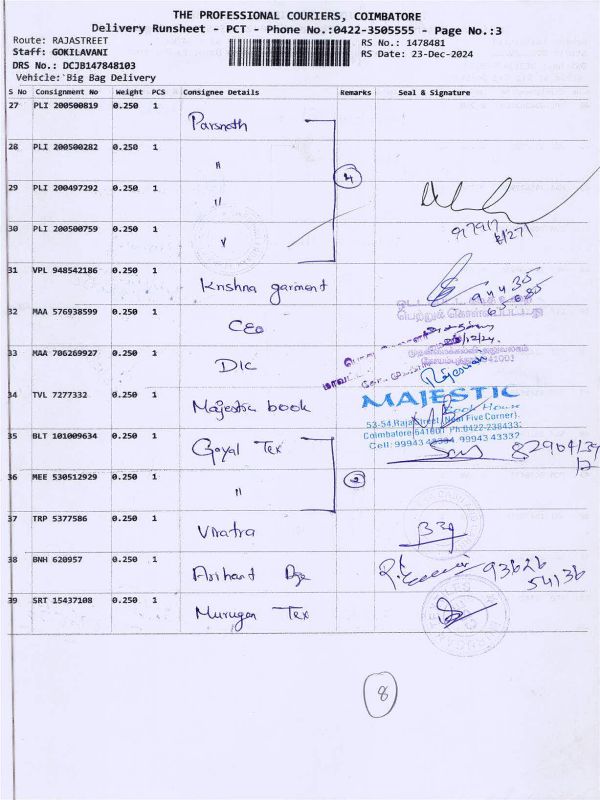 THE PROFESSIONAL COURIERS, COIMBATORE
Delivery Runsheet - PCT - Phone No.:0422-3505555 - Page No.:3
Route: RAJASTREET
RS No.: 1478481
Staff: GOKILAVANI
RS Date: 23-Dec-2024
DRS No.: DCJB147848103
Vehicle: Big Bag Delivery
S No Consignment No Weight PCS Consignee Details Remarks Seal & Signature
27 PLI 200500819 0.250 1 Parsnath
28 PLI 200500282 0.250 1 "
4
29 PLI 200497292 0.250 1 "
30 PLI 200500759 0.250 1 "
31 VPL 948542186 0.250 1 Krishna garment
32 MAA 576938599 0.250 1 CEO
33 MAA 706269927 0.250 1 DIC
Rajeswari
34 TVL 7277332 0.250 1 Majestic book
MAJESTIC
Book House
53-54, Raja Street, (Near Five Corner)
Coimbatore 641001 Ph:0422-238433
Cell: 99943 43334, 99943 43332
35 BLT 101009634 0.250 1 Goyal Tex
36 MEE 530512929 0.250 1 "
2
37 TRP 5377586 0.250 1 Viratra
38 BNH 620957 0.250 1 Arihant
93626
54136
39 SRT 15437108 0.250 1 Murugan Tex
8